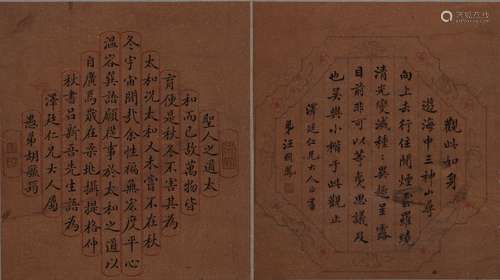 聖人之道太
和而已故萬物皆
育便是秋冬不害其為
太和況太和又未嘗不在秋
冬宇宙間哉余性褊無宏度平心
溫容巽語願從事於太和之道以
自廣焉歲在柔兆攝提格仲
秋書呂新吾先生語為
澤廷仁兄大人屬
愚弟胡
觀此如身
遊海中三神山尋
向上去行住閒煙雲羅繞
清光變滅種種異趣呈露
目前非可以等夷思議及
也吳興小楷于此觀止
澤廷仁兄大人正書
弟汪